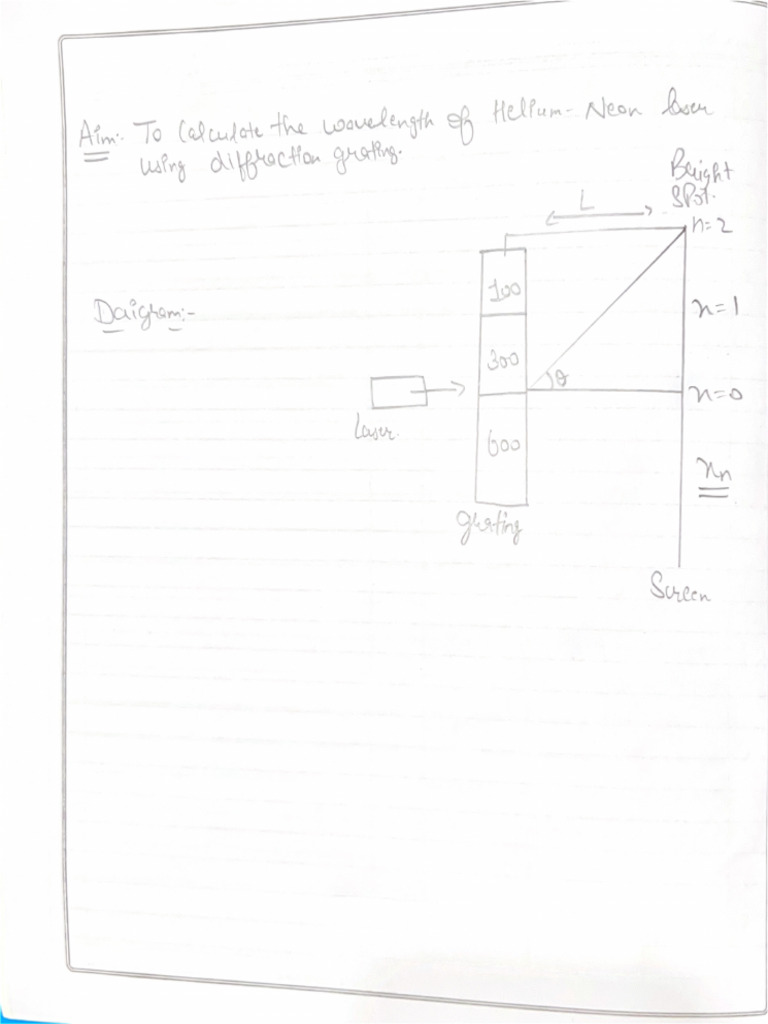 Aim:- To Calculate the wavelength of Helium-Neon laser
using diffraction grating.
Bright
Spot.
L
n=2
100
Daigram:-
n=1
300
θ
n=0
Laser.
600
xn
grating
Screen